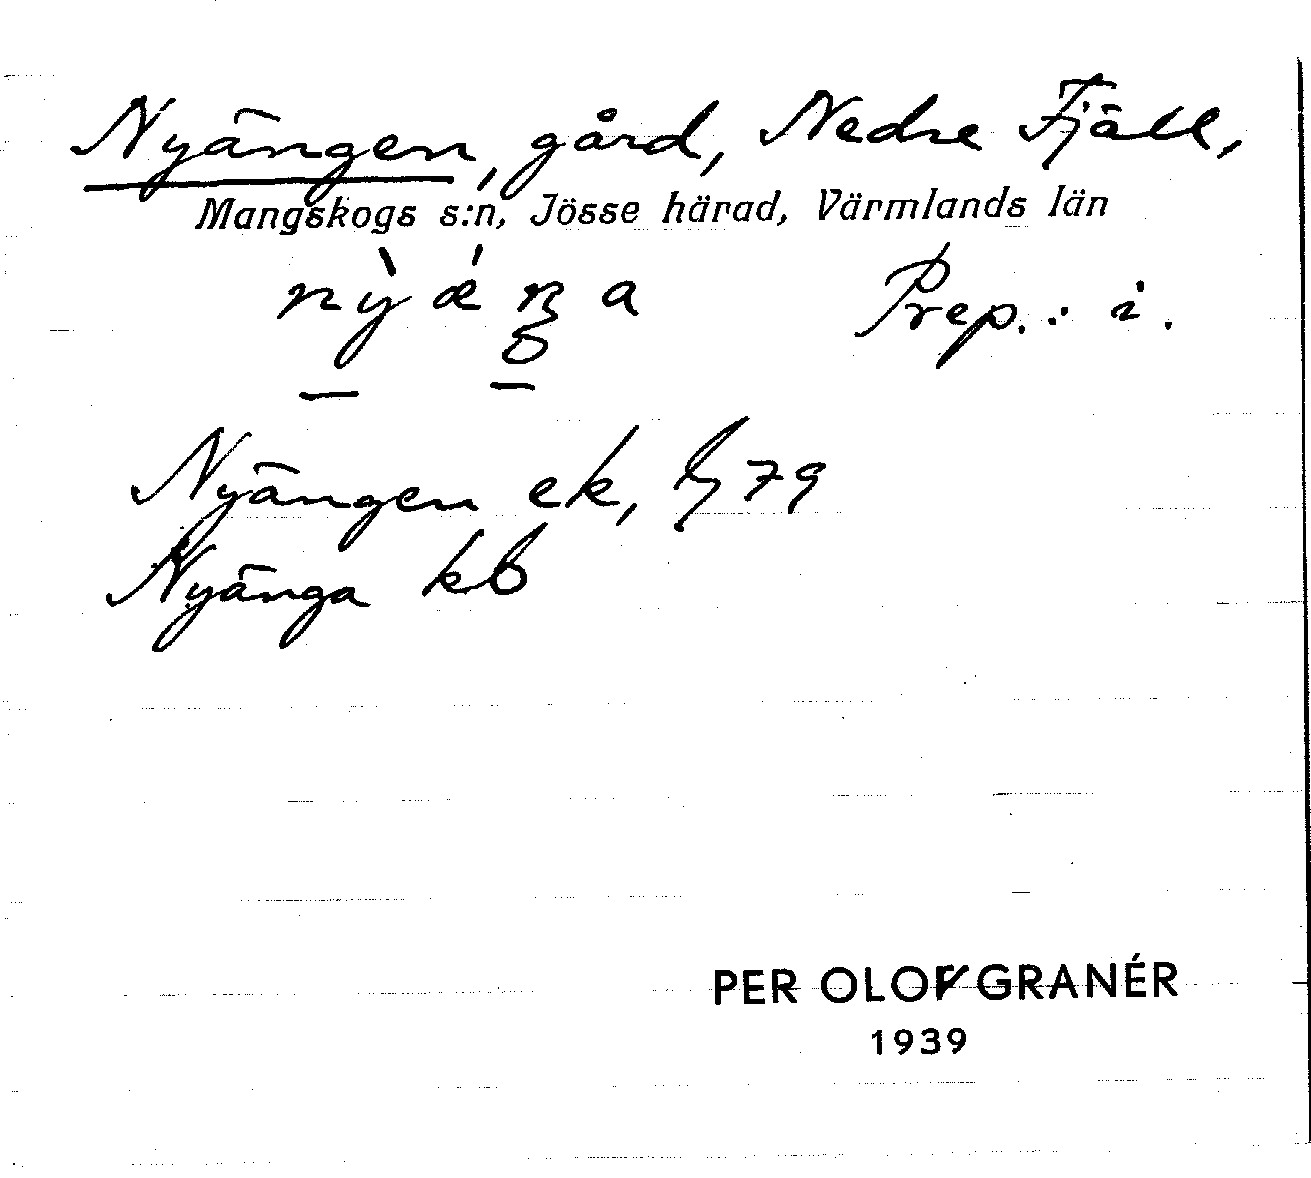 Nyängen, gård, Nedre Fjäll,
Mangskogs s:n, Jösse härad, Värmlands län
Prep.: i.
Nyängen ek, 79
Nyänga kb
PER OLOV GRANÉR
1939